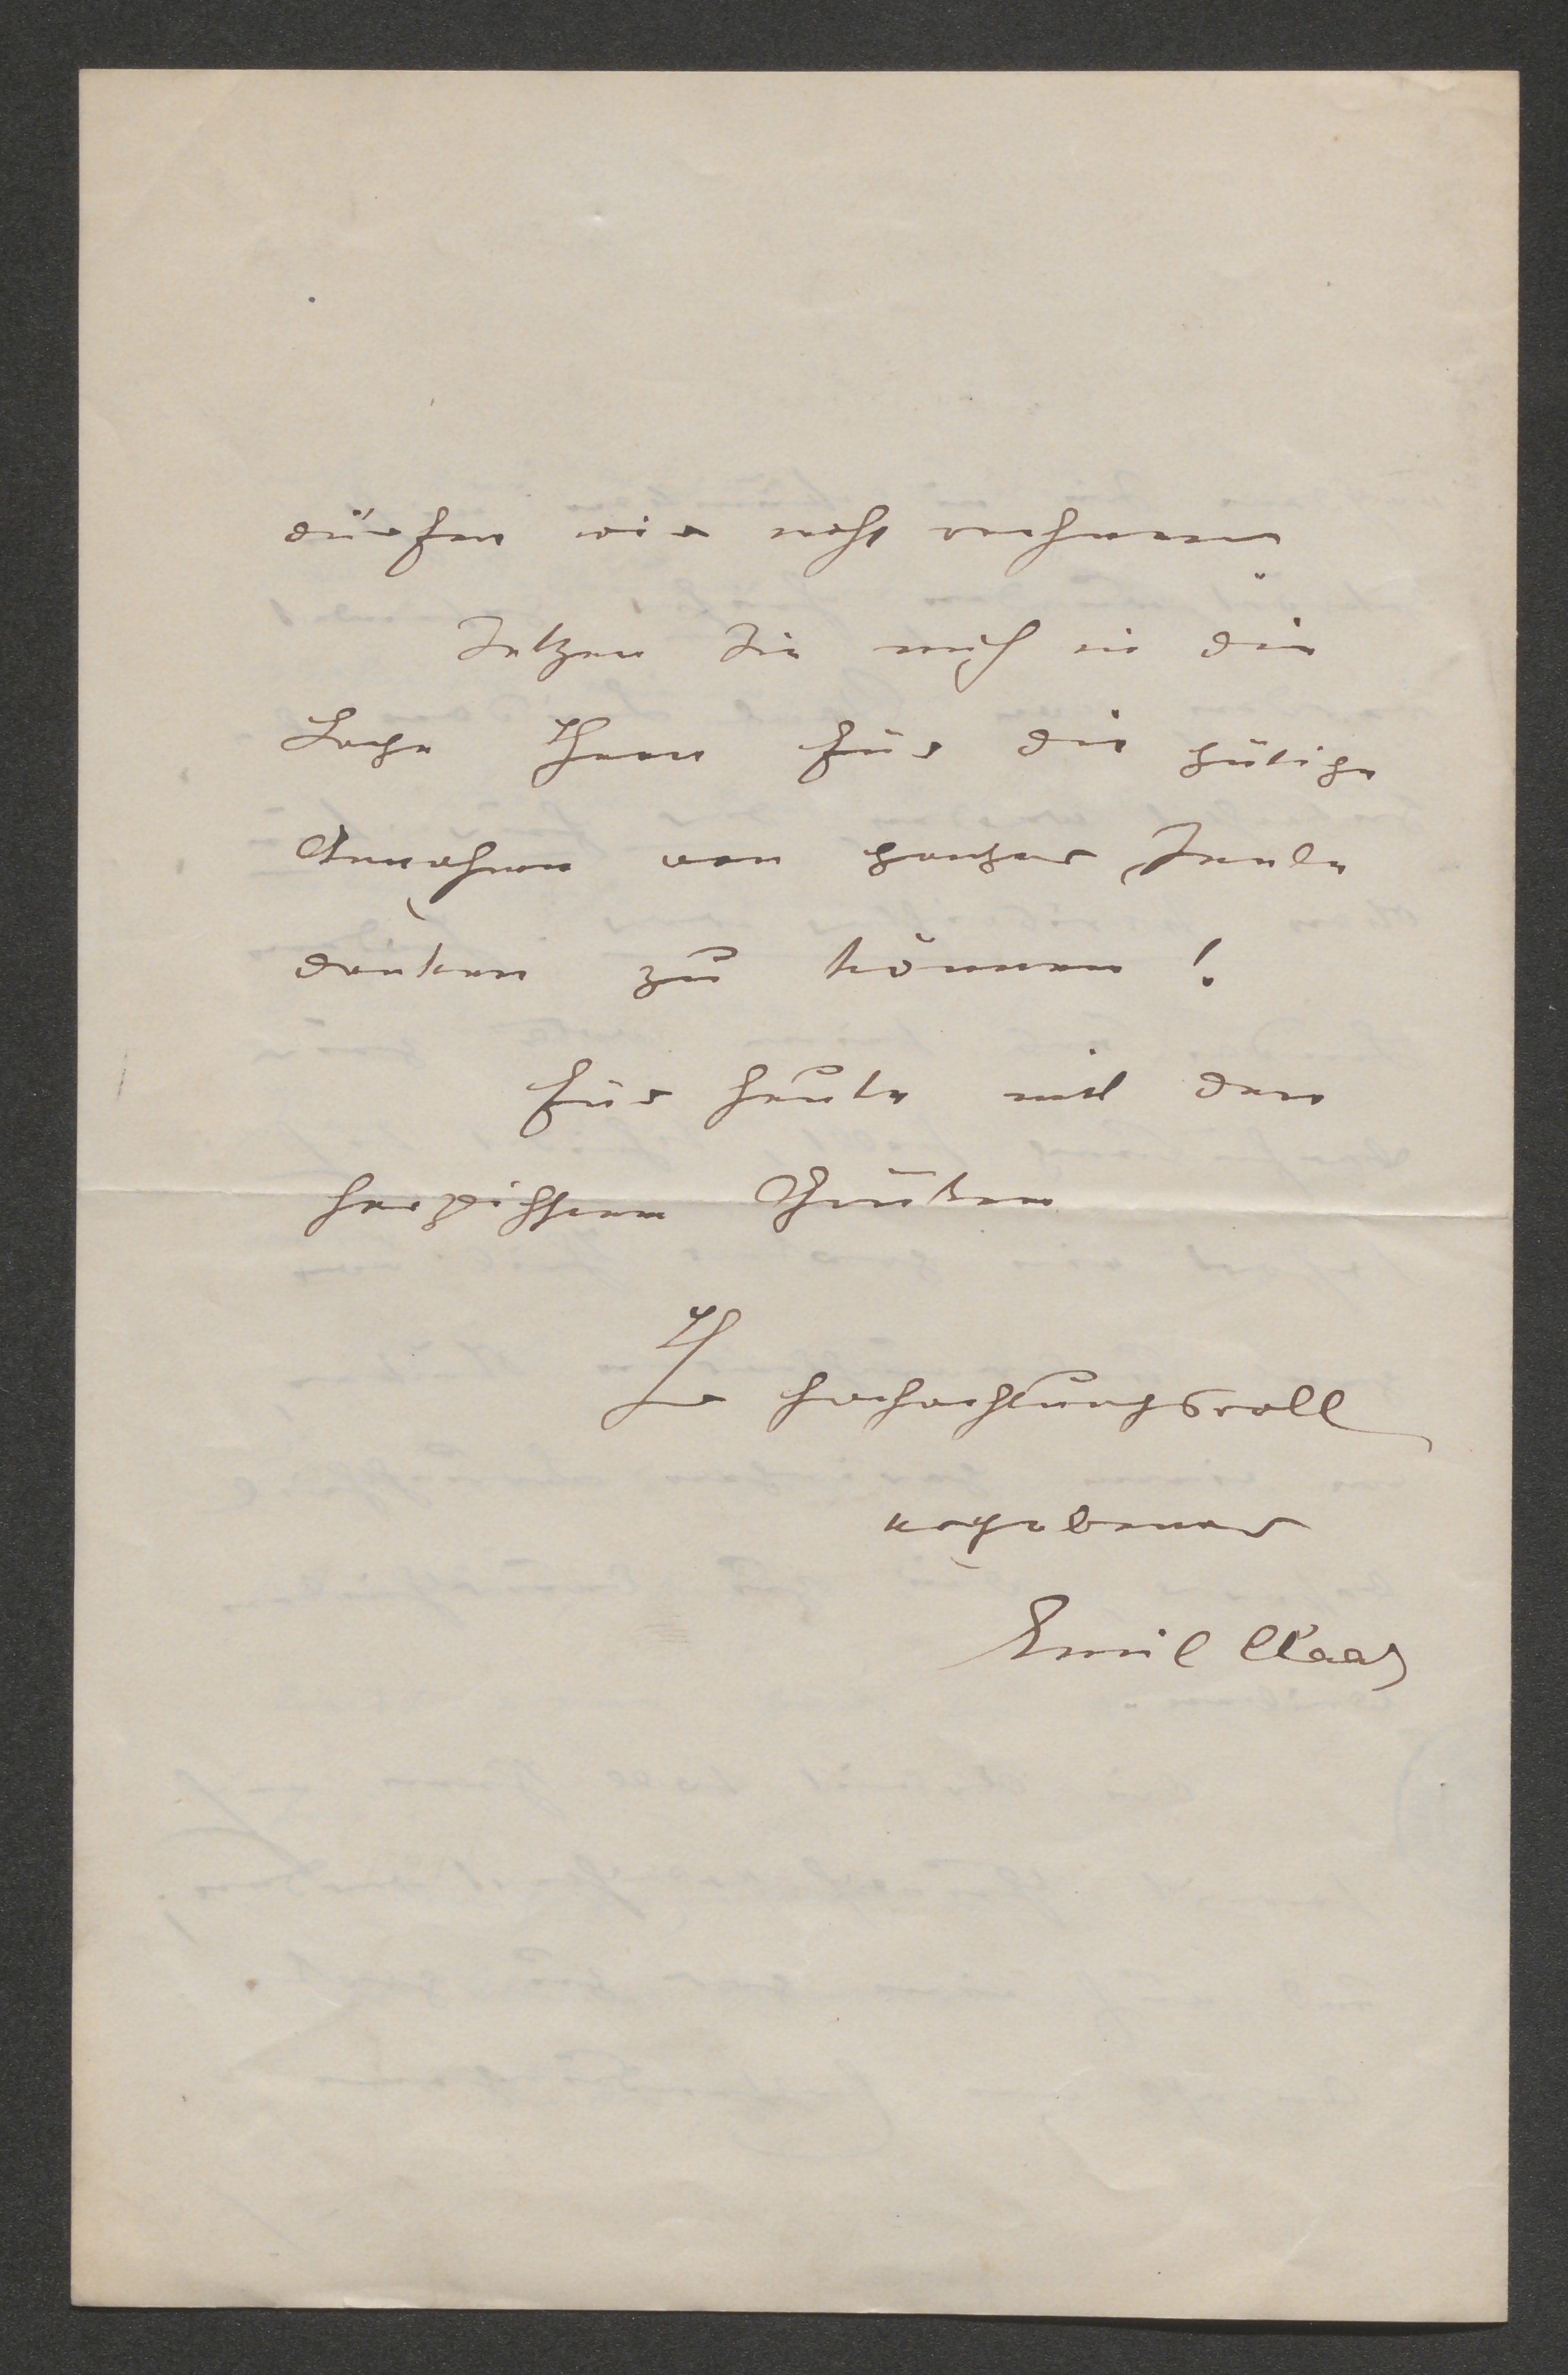 dürfen wir wohl rechnen
Setzen Sie mich in die
Lage Ihnen für die gütige
Annahme von ganzer Seele
danken zu können!
Für heute mit den
herzlichsten Grüßen
Ihr hochachtungsvoll
ergebener
Emil Claar